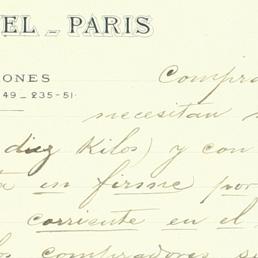 EL - PARIS
ONES
49 - 235-51
Compra
necesitan
diez Kilos) y con
en firme por
corriente en el
los compradores se